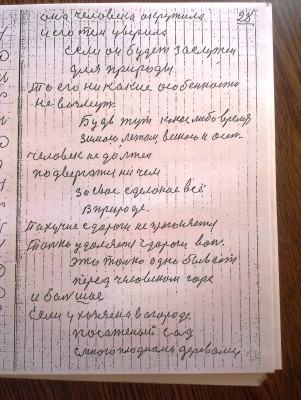 она человека окружила
28
и его тем уверила
если он будет заслужен
для природы
то его никакие особенности
не возмут.
Будь тут какое либо время
зимою, летом, весною и осен.
человек не должен
подвергати ни чем
за свое сделоное всё
в природе.
Пахучие с дороги не
Только удоляете с дороги вон.
это только одно бывает
перед человеком горе
и большое
если у хозяена в огороде
посаженый сад
с многоплодными деревами